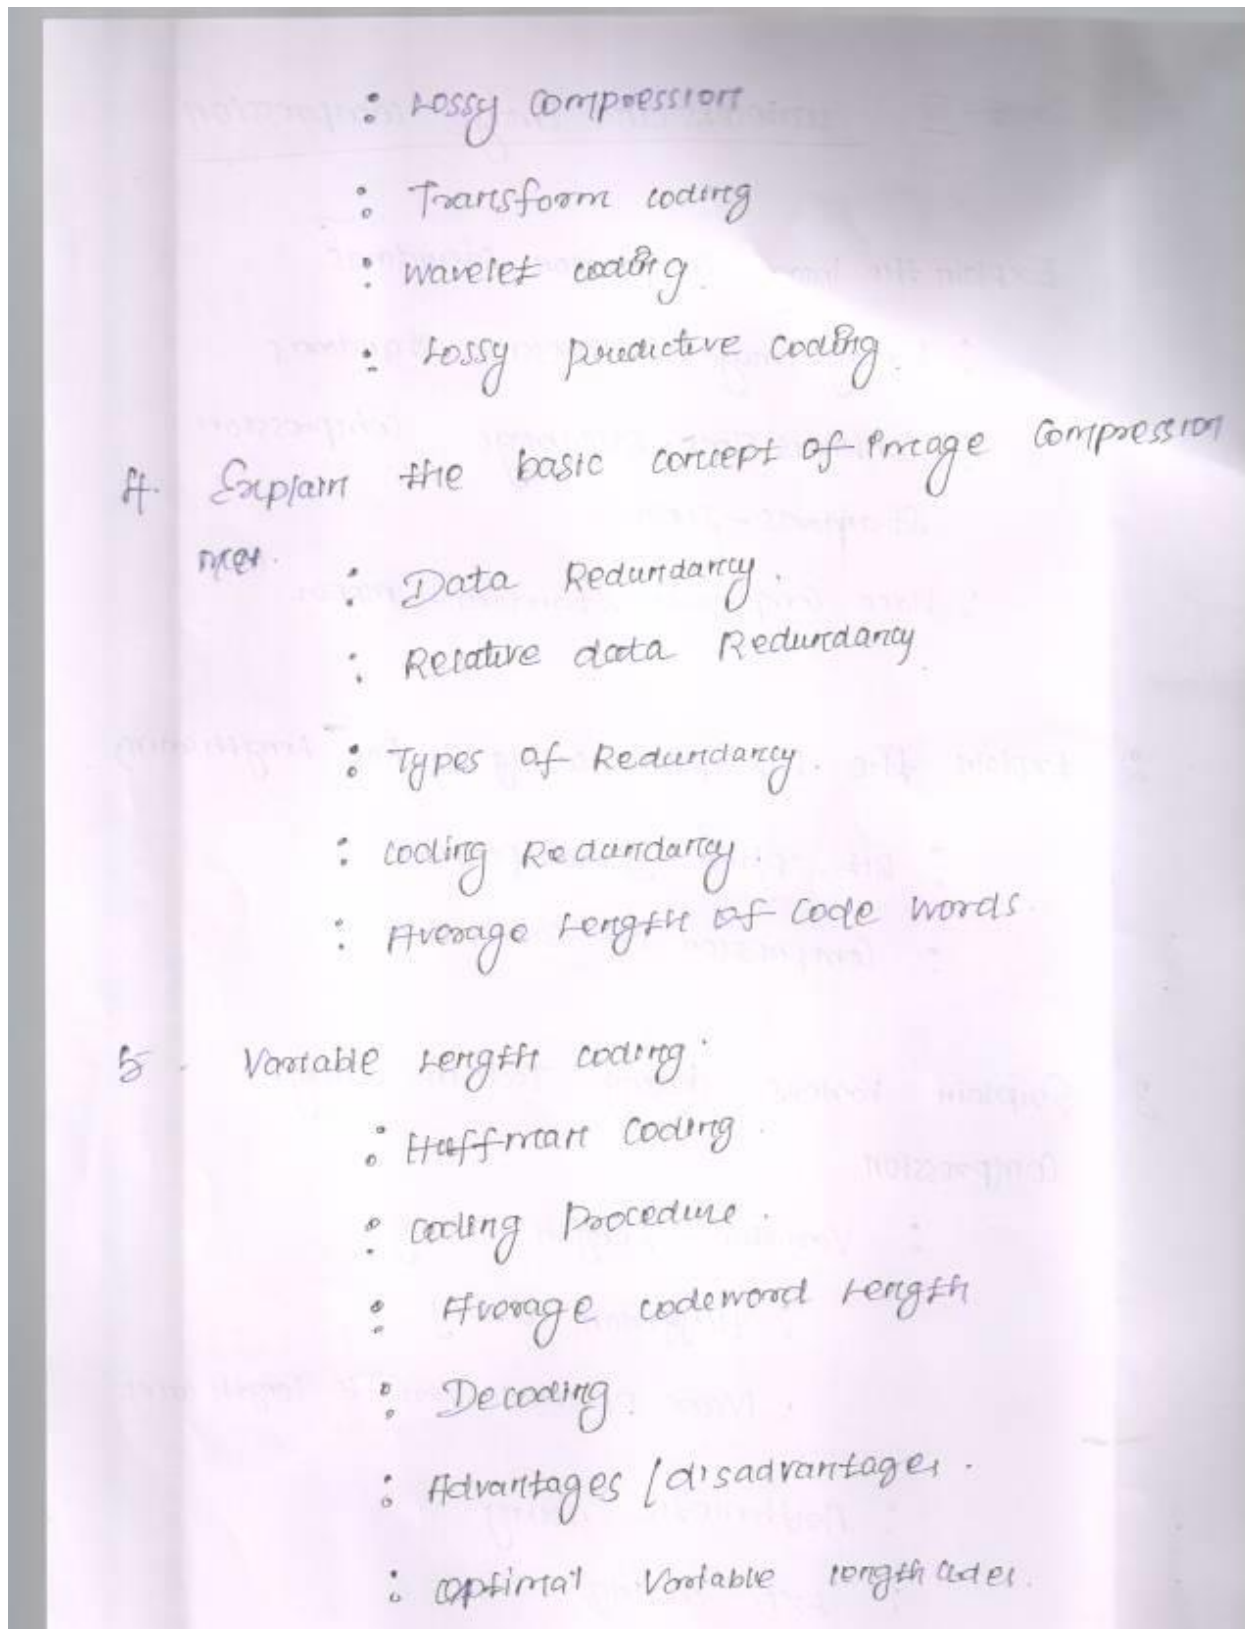 : Lossy Compression
: Transform coding
: wavelet coding.
: Lossy predictive coding.
4. Explain the basic concept of image Compression
: Data Redundancy.
: Relative data Redundancy
: Types of Redundancy.
: coding Redundancy.
: Average Length of Code words.
5. Variable Length coding.
: Huffman Coding.
: coding Procedure.
: Average codeword Length
: Decoding.
: Advantages / disadvantages.
: optimal Variable length codes.